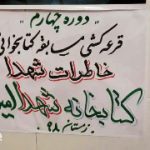 "دوره چهارم"
قرعه کشی مسابقه کتابخوانی
خاطرات شهدا
کتابخانه شهدا امیر
زمستان ۹۸